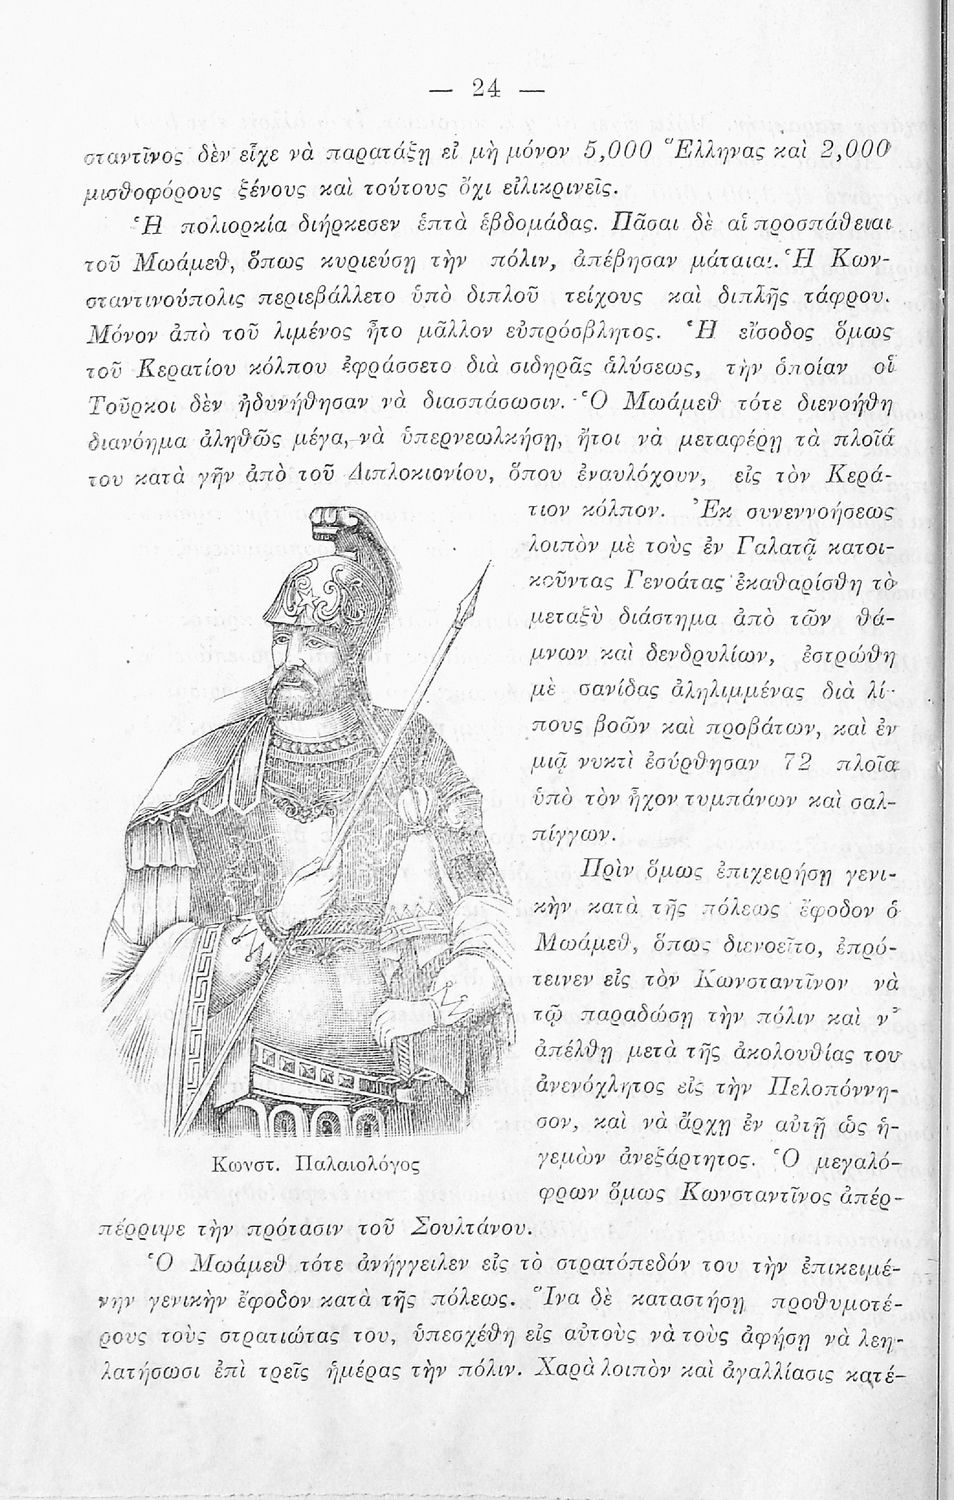 — 24 —
σταντῖνος δὲν εἶχε νὰ παρατάξῃ εἰ μὴ μόνον 5,000 Ἕλληνας καὶ 2,000
μισθοφόρους ξένους καὶ τούτους ὄχι εἰλικρινεῖς.
Ἡ πολιορκία διήρκεσεν ἑπτὰ ἑβδομάδας. Πᾶσαι δὲ αἱ προσπάθειαι
τοῦ Μωάμεθ, ὅπως κυριεύσῃ τὴν πόλιν, ἀπέβησαν μάταιαι. Ἡ Κων-
σταντινούπολις περιεβάλλετο ὑπὸ διπλοῦ τείχους καὶ διπλῆς τάφρου.
Μόνον ἀπὸ τοῦ λιμένος ἦτο μᾶλλον εὐπρόσβλητος. Ἡ εἴσοδος ὅμως
τοῦ Κερατίου κόλπου ἐφράσσετο διὰ σιδηρᾶς ἁλύσεως, τὴν ὁποίαν οἱ
Τοῦρκοι δὲν ἠδυνήθησαν νὰ διασπάσωσιν. Ὁ Μωάμεθ τότε διενοήθη
διανόημα ἀληθῶς μέγα, νὰ ὑπερνεωλκήσῃ, ἤτοι νὰ μεταφέρῃ τὰ πλοῖά
του κατὰ γῆν ἀπὸ τοῦ Διπλοκιονίου, ὅπου ἐναυλόχουν, εἰς τὸν Κερά-
τιον κόλπον. Ἐκ συνεννοήσεως
λοιπὸν μὲ τοὺς ἐν Γαλατᾷ κατοι-
κοῦντας Γενοάτας ἐκαθαρίσθη τὸ
μεταξὺ διάστημα ἀπὸ τῶν θά-
μνων καὶ δενδρυλίων, ἐστρώθη
μὲ σανίδας ἀληλιμμένας διὰ λί-
πους βοῶν καὶ προβάτων, καὶ ἐν
μιᾷ νυκτὶ ἐσύρθησαν 72 πλοῖα
ὑπὸ τὸν ἦχον τυμπάνων καὶ σαλ-
πίγγων.
Πρὶν ὅμως ἐπιχειρήσῃ γενι-
κὴν κατὰ τῆς πόλεως ἔφοδον ὁ
Μωάμεθ, ὅπως διενοεῖτο, ἐπρό-
τεινεν εἰς τὸν Κωνσταντῖνον νὰ
τῷ παραδώσῃ τὴν πόλιν καὶ ν᾽
ἀπέλθῃ μετὰ τῆς ἀκολουθίας του
ἀνενόχλητος εἰς τὴν Πελοπόννη-
σον, καὶ νὰ ἄρχῃ ἐν αὐτῇ ὡς ἡ-
γεμὼν ἀνεξάρτητος. Ὁ μεγαλό-
φρων ὅμως Κωνσταντῖνος ἀπέρ-
Κωνστ. Παλαιολόγος
πέρριψε τὴν πρότασιν τοῦ Σουλτάνου.
Ὁ Μωάμεθ τότε ἀνήγγειλεν εἰς τὸ στρατόπεδόν του τὴν ἐπικειμέ-
νην γενικὴν ἔφοδον κατὰ τῆς πόλεως. Ἵνα δὲ καταστήσῃ προθυμοτέ-
ρους τοὺς στρατιώτας του, ὑπεσχέθη εἰς αὐτοὺς νὰ τοὺς ἀφήσῃ νὰ λεη-
λατήσωσι ἐπὶ τρεῖς ἡμέρας τὴν πόλιν. Χαρὰ λοιπὸν καὶ ἀγαλλίασις κατέ-